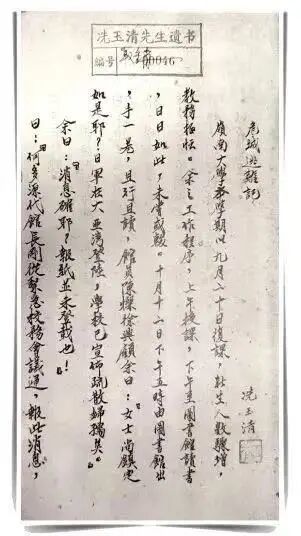 冼玉清先生遗书
編号 00046
危城逃難記
冼玉清
嶺南大學本學期以九月二十日復課,新生人數驟增,
教務極忙。余之工作程序,上午授課,下午至圖書館讀書
,日日如此,未嘗或輟。十月十二日下午五時由圖書館出
,手一卷,且行且讀,館員陳燦徐興顧余曰:女士尚鎮定
如是耶?日軍在大亞灣登陸,學校已宣佈疏散婦孺矣。
余曰:消息確耶?報紙並未登載也!
曰:何多源代館長剛從緊急校務會議返,報此消息,